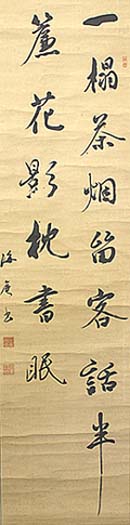 一榻茶烟留客話半
簾花影枕書眠
海鹿書